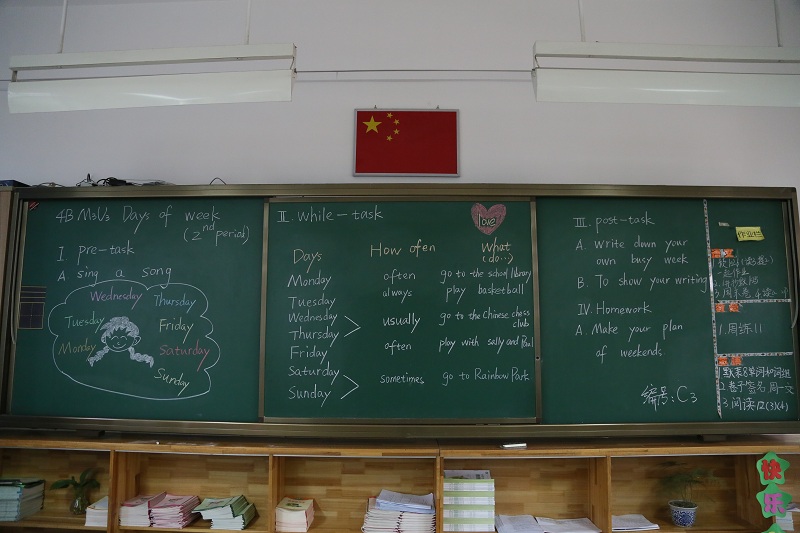 4B M3U3 Days of week
(2nd period)
I pre-task
A sing a song
Wednesday
Thursday
Tuesday
Friday
Monday
Saturday
Sunday
II. while-task
love
Days How ofen What
(do...)
Monday often go to the school library
Tuesday always play basketball
Wednesday
Thursday usually go to the Chinese chess
club
Friday often play with sally and Paul
Saturday
Sunday sometimes go to Rainbow Park
III. post-task
A. write down your
own busy week
B. To show your writing
IV. Homework
A. Make your plan
of weekends
编号: C3
作业栏
1.周练11
1.默写8单词和词组
2.卷子签名 周一交
3.阅读12(3)(4)
快
乐